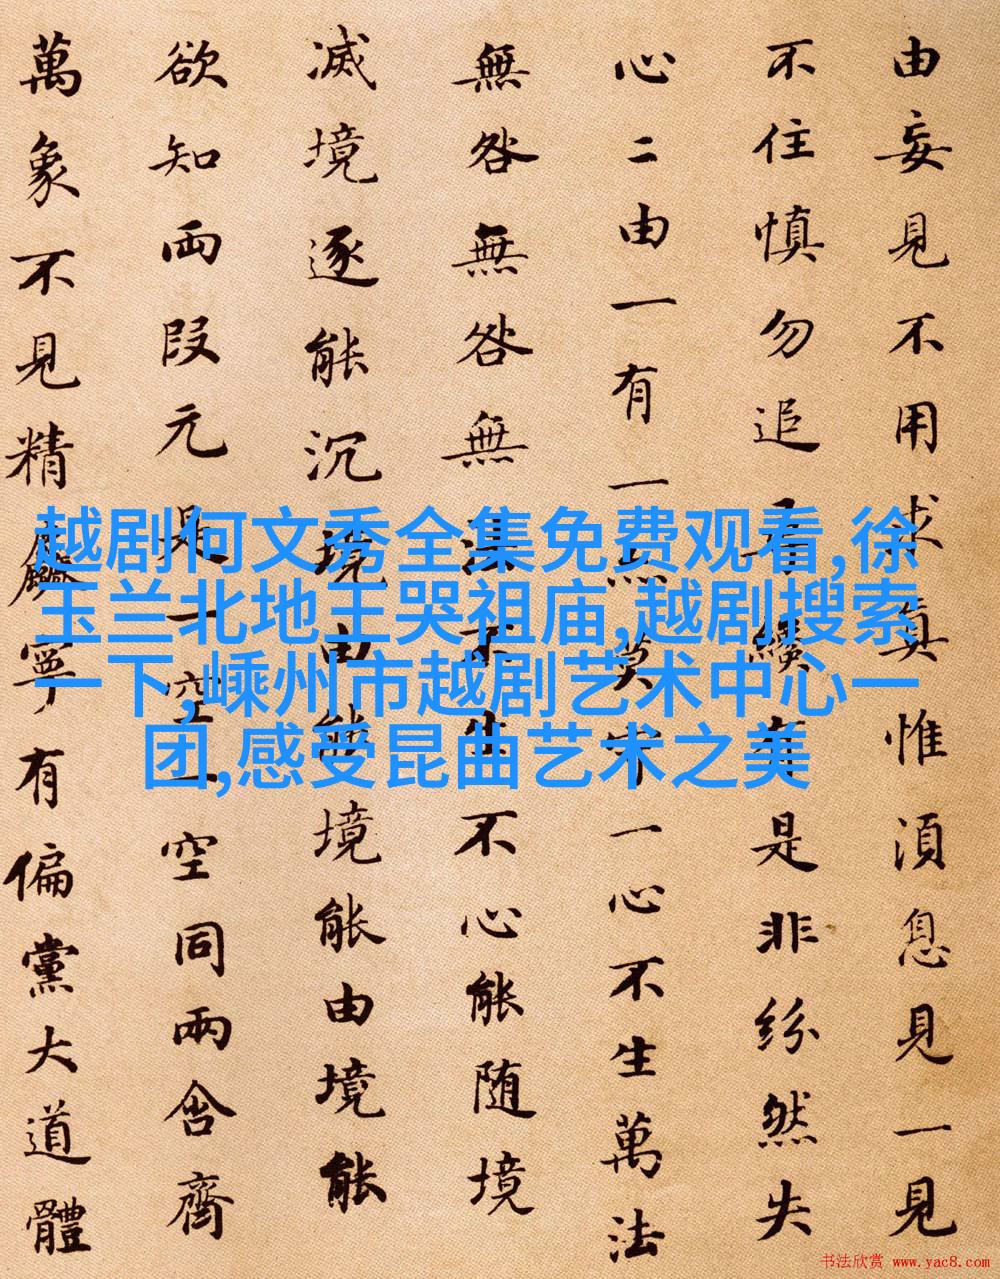 由妄見不用求真惟湏息見一見
不住慎勿追尋纔有是非紛然失
心二由一有一亦莫守一心不生萬法
無咎無咎無法不生不心能随境
滅境逐能沉境由能境能由境能
欲知兩段元是一空一空同兩含齊
萬象不見精麤寧有偏黨大道體
越剧何文秀全集免费观看,徐
玉兰北地王哭祖庙,越剧搜索
一下,嵊州市越剧艺术中心一
团,感受昆曲艺术之美
书法欣赏 www.yac8.com